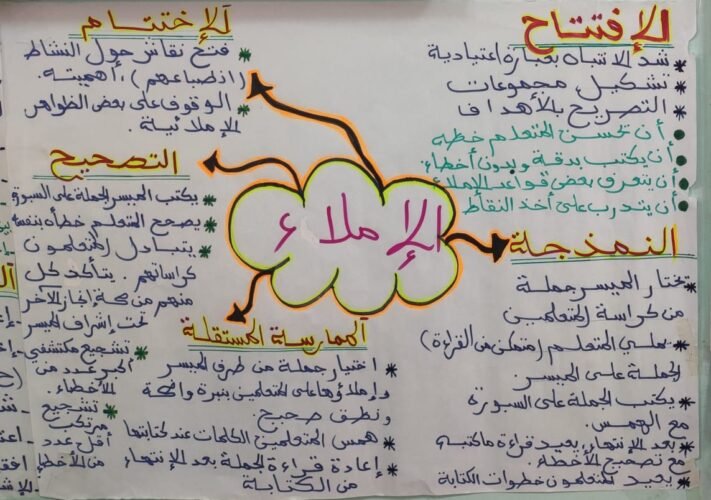 الإفتتاح
* شد الانتباه بعبارة اعتيادية
* تشكيل مجموعات
* التصريح بالأهداف
● أن يحسن المتعلم خطه
● أن يكتب بدقة وبدون أخطاء
● أن يتعرف بعض قواعد الإملاء
● أن يتدرب على أخذ النقاط
النمذجة
* يختار الميسر جملة
من كراسة المتعلمين
* يملي المتعلم (متمكن من القراءة)
الجملة على الميسر
* يكتب الجملة على السبورة
مع الهمس.
* بعد الإنتهاء، يعيد قراءة ماكتبه
مع تصحيح الأخطاء.
* يعيد المتعلمون خطوات الكتابة
الإملاء
الممارسة المستقلة
* اختيار جملة من طرف الميسر
وإملاؤها على المتعلمين بنبرة واضحة
ونطق صحيح.
* همس المتعلمين الكلمات عند كتابتها
* إعادة قراءة الجملة بعد الإنتهاء
من الكتابة
التصحيح
* يكتب الميسر الجملة على السبورة
* يصحح المتعلم خطأه بنفسه
* يتبادل المتعلمون
كراساتهم. يتأكد كل
منهم من صحة إنجاز الآخر
تحت إشراف الميسر
* تشجيع مكتشفي
أكبر عدد من
الأخطاء.
* تشجيع
مرتكب
أقل عدد
من الأخطاء
الإختتام
* فتح نقاش حول النشاط
(انطباعهم)، أهميته.
* الوقوف على بعض الظواهر
الإملائية.